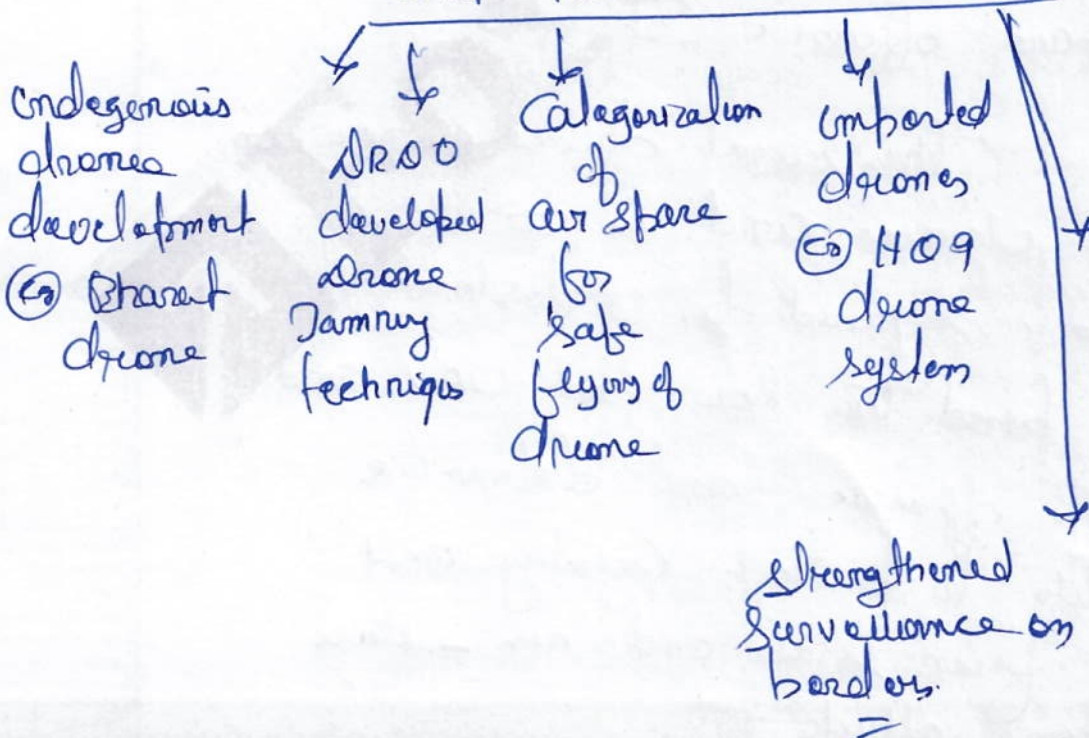 indegenous
drones
development
Eg Bharat
drone
DRDO
developed
Drone
Jamming
techniqus
Catagorization
of
air space
for
safe
flying of
drone
imported
drones
Eg HO9
drone
system
strengthened
Surveillance on
borders.